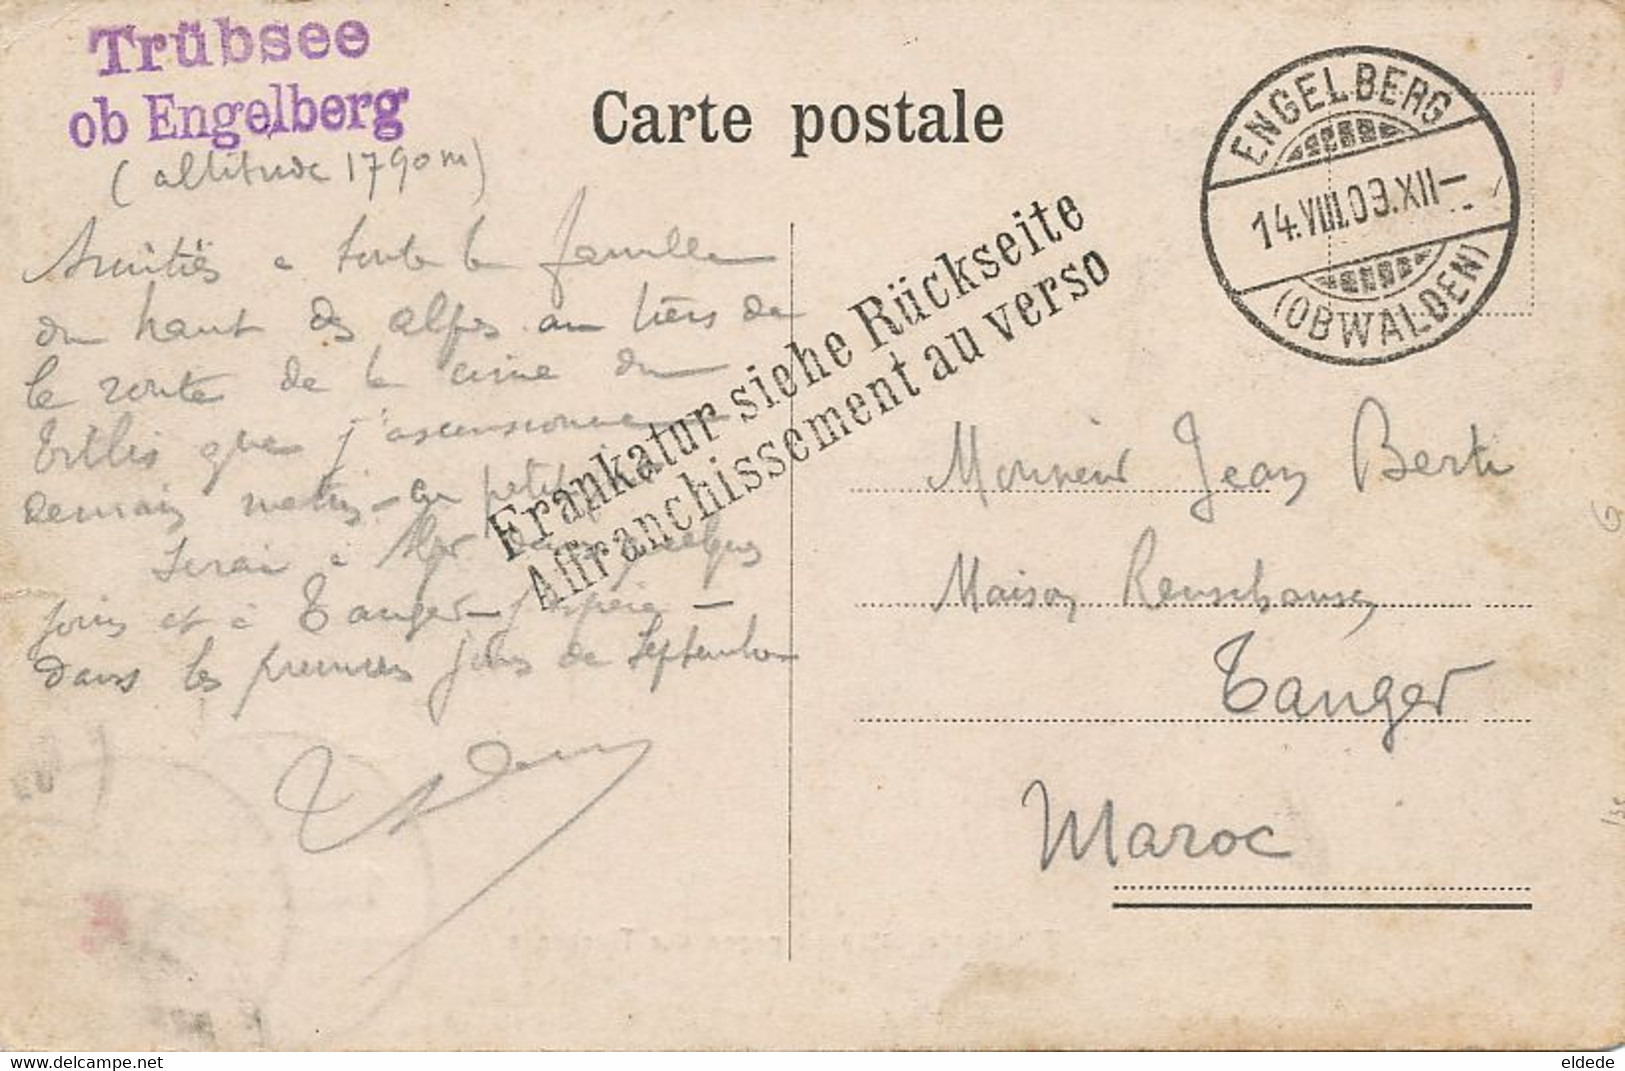 Trübsee
ob Engelberg
(altitude 1790m)
Carte postale
ENGELBERG
14.VIII.09.XII–
(OBWALDEN)
Frankatur siehe Rückseite
Affranchissement au verso
Amitiés a toute la famille
du haut des alpes au tiers de
la route de la cime du
Titlis que j'ascensionne
demain matin
Serai à Alger dans quelques
jours et à Tanger – j'espère –
dans les premiers jours de Septembre
Monsieur Jean Berti
Maison Renschausen
Tanger
Maroc
delcampe.net
eldede